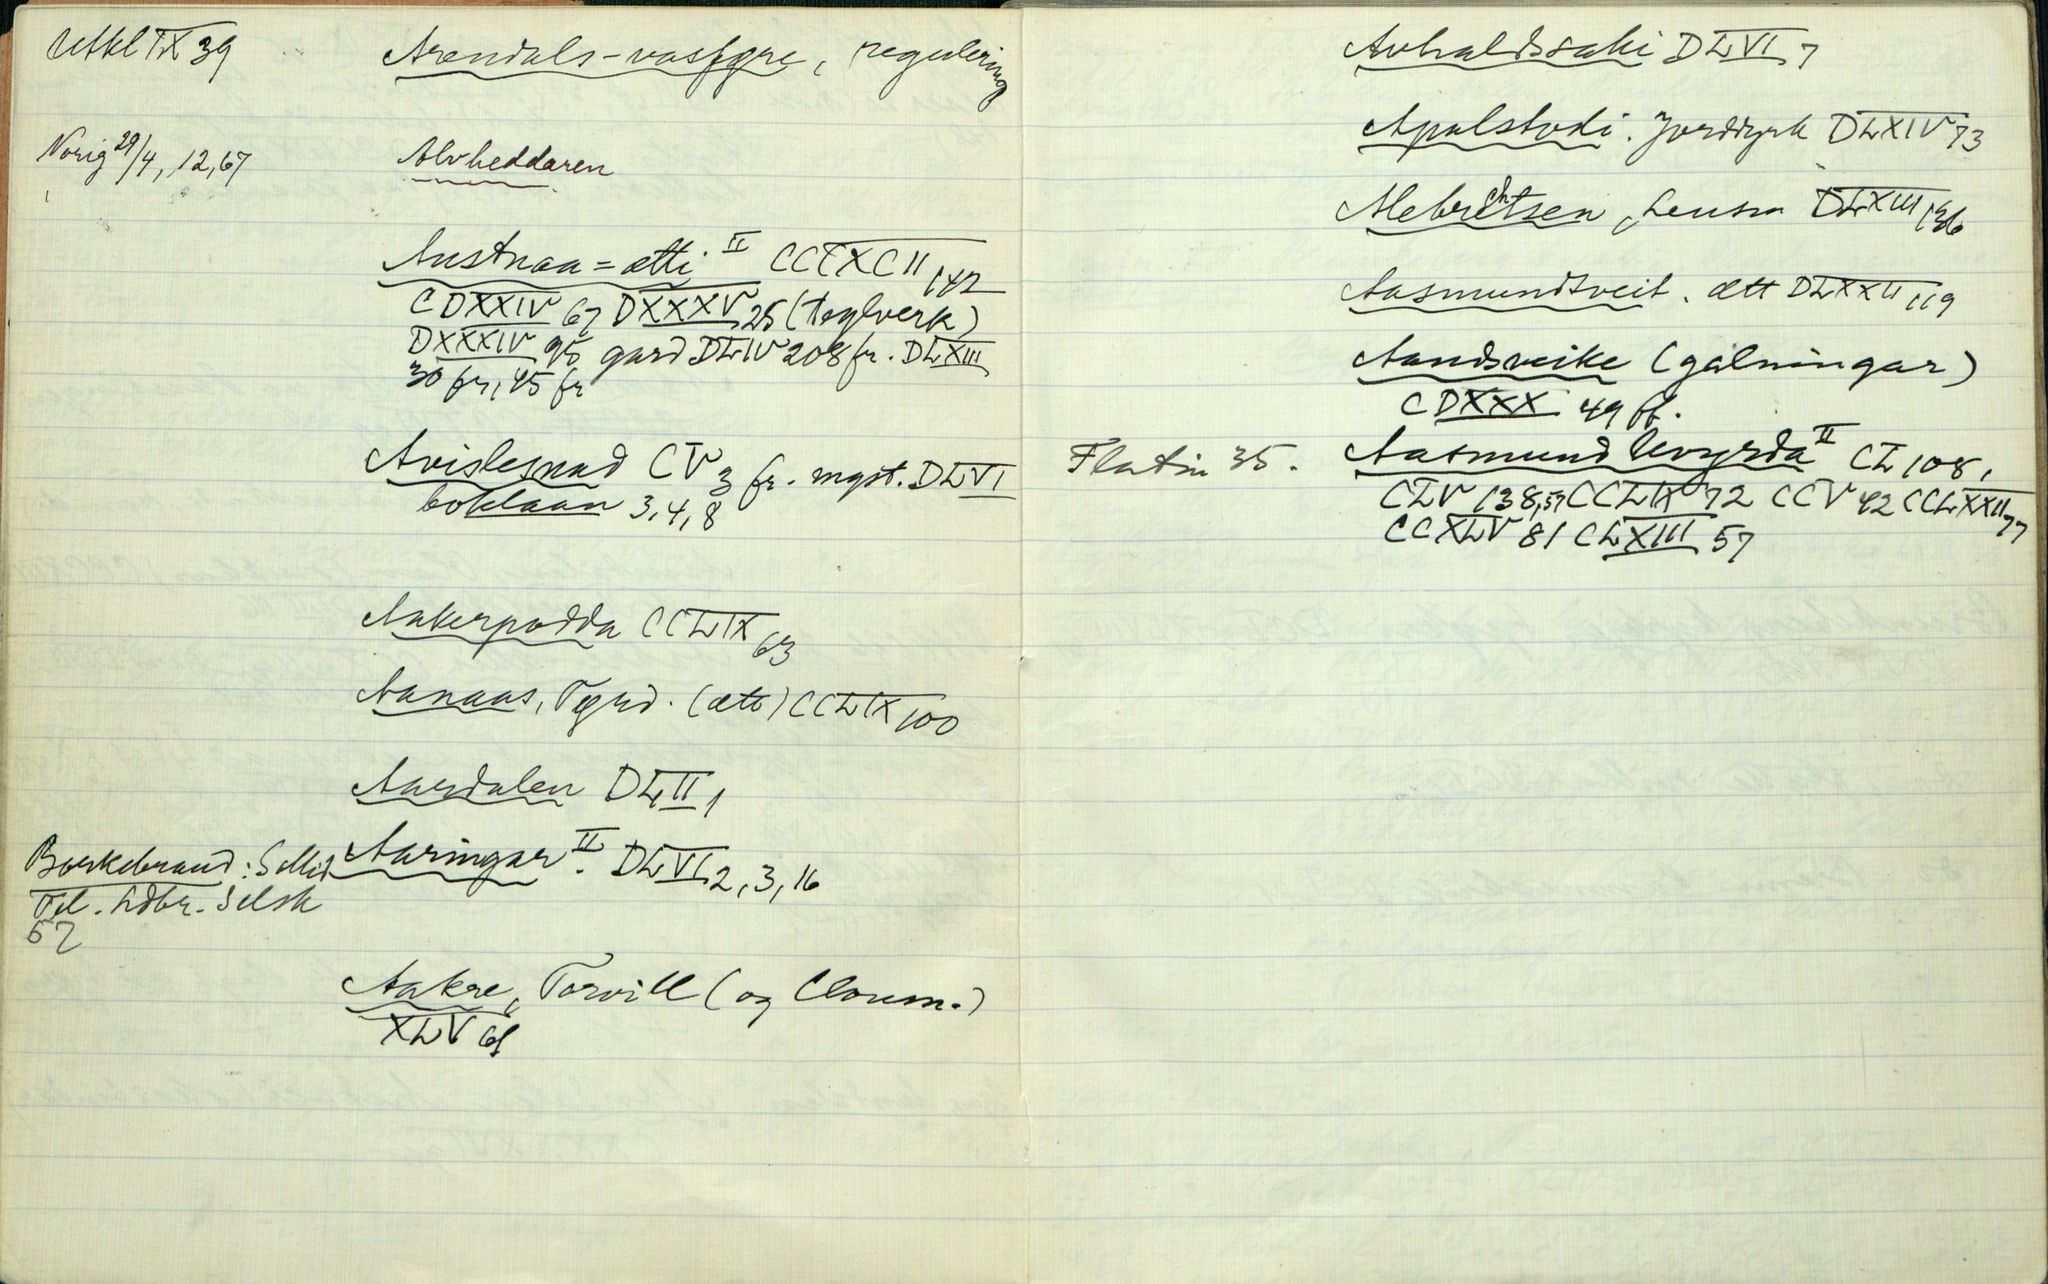 Utkl IX 39 Arendals-vassføre, regulering
Norig 29/4, 12, 67 Alvheddaren
Austnaa=ætti II CCLXCII 142
CDXXIV 67 DXXXV 25 (teglverk)
DXXXIV 95 gard DLIV 208 fr. DLXIII
30 fr, 45 fr
Avislesnad CV 3 fr. mgst. DLVI
boklaan 3, 4, 8
Aakerpodda CCLIX 63
Aanaas, Tørd. (ætt) CCLIX 100
Aardalen DLII 1
Aaringar II. DLVI 2, 3, 16
Børkebraud: Sellid
Tel. Ldbr. Selsk
57
Aakre, Torvill (og Cloum.)
XLV 61
Avhaldssaki DLVI 7
Apalstodi. Jorddyrk DLXIV 73
Alebrechtsen, Lensm DLXIII 136
Aasmundtveit. ætt DLXXII 119
Aandsveike (galningar)
CDXXX 49 ff.
Flatin 35. Aasmund Uvyrda II CL 108,
CLV 138, 57 CCLIX 72 CCV 42 CCLXXII 77
CCXLV 81 CLXIII 57